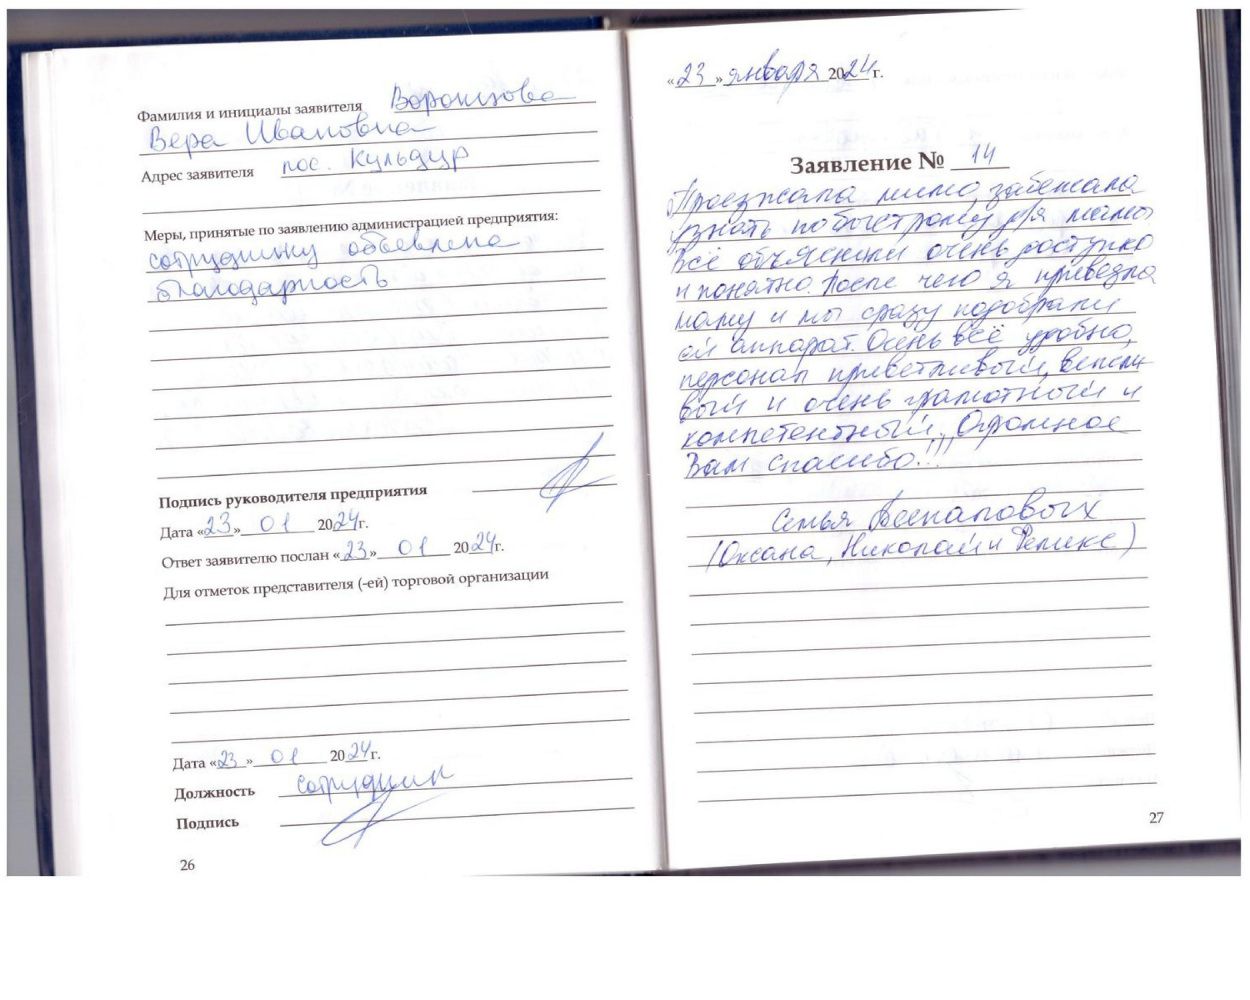 Фамилия и инициалы заявителя Воронцова
Вера Ивановна
Адрес заявителя пос. Кульдур
Меры, принятые по заявлению администрацией предприятия:
сотруднику объевлена
благодарность
Подпись руководителя предприятия
Дата «23» 01 2024г.
Ответ заявителю послан «23» 01 2024г.
Для отметок представителя (-ей) торговой организации
Дата «23» 01 2024г.
Должность сотрудник
Подпись
26
«23» января 2024 г.
Заявление № 14
Проезжала мимо, забежала
узнать побыстрому для мамы
Всё объяснили очень доступно
и понятно. После чего я привезла
маму и мы сразу подобрали
ей аппарат. Очень всё удобно,
персонал приветливый, вежли
вый и очень грамотный и
компетентный. Огромное
Вам спасибо!!!
Семья Беспаловых
(Оксана, Николай и Феликс)
27